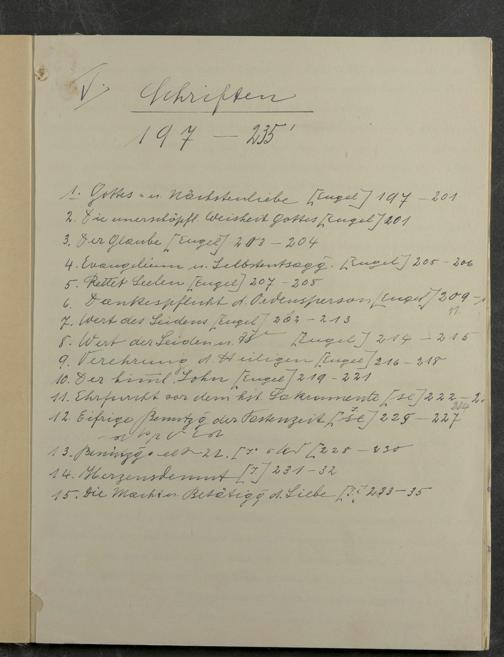 V. Schriften
197 – 235
1. Gottes- u. Nächstenliebe [Engel] 197 – 201
2. Die unerschöpfl. Weisheit Gottes [Engel] 201
3. Der Glaube [Engel] 203 – 204
4. Evangelium u. Selbstentsagg. [Engel] 205 – 206
5. Rettet Seelen [Engel] 207 – 208
6. Dankespflicht d. Ordensperson [Engel] 209 –
7. Wert des Leidens [Engel] 212 – 213
8. Wert der Leiden u. [Engel] 214 – 215
9. Verehrung d. Heiligen [Engel] 216 – 218
10. Der himml. Lohn [Engel] 219 – 221
11. Ehrfurcht vor dem hst. Sakramente [sE] 222 –
12. Eifrige Benützg der Fastenzeit [sE] 225 – 227
13. Benützg [ 228 – 230
14. Herzensdemut [?] 231 – 32
15. Die Macht u. Betätigg d. Liebe [?] 233 – 35